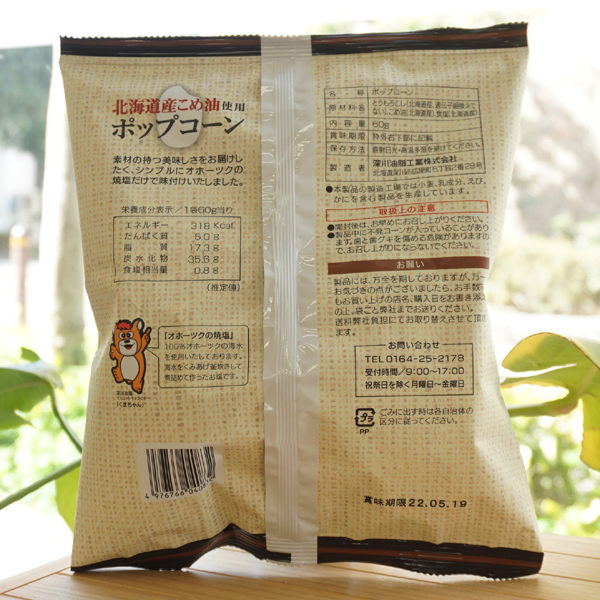 北海道産こめ油使用
ポップコーン
素材の持つ美味しさをお届けし
たく、シンプルにオホーツクの
焼塩だけで味付けいたしました。
栄養成分表示／1袋60g当り
エネルギー 318 Kcal
たんぱく質 5.0g
脂質 17.3g
炭水化物 35.8g
食塩相当量 0.8g
(推定値)
「オホーツクの焼塩」
100%オホーツクの海水
を使用いたしております。
海水をくみあげ釜炊きして
煮詰めて作ったお塩です。
深川油脂
(くまちゃん)
4 976766
名称 ポップコーン
原材料名 とうもろこし(北海道産、遺伝子組換えで
ない)、こめ油(北海道産)、食塩(北海道産)
内容量 60g
賞味期限 枠外右下部に記載
保存方法 直射日光・高温多湿を避けてください。
製造者 深川油脂工業株式会社
北海道深川市広里町5丁目2番28号
●本製品の製造工場では小麦、乳成分、えび、
かにを含む製品を生産しています。
取扱上の注意
●開封後は、お早めにお召し上がりください。
●製品中に不発コーンが入っていることがあり
ます。歯と歯グキを傷める危険がありますの
で、お召し上がりにならないでください。
お願い
製品には、万全を期しておりますが、万一
お気づきの点がございましたら、お手数で
もお買い上げの店名、購入日をお書き添え
の上、袋ごと弊社までお送りください。
送料弊社負担にてお取り替えさせて頂き
ます。
お問い合わせ
TEL 0164-25-2178
受付時間／9:00~17:00
祝祭日を除く月曜日~金曜日
プラ
PP
ごみに出す時は各自治体の
区分に従ってください。
賞味期限 22.05.19